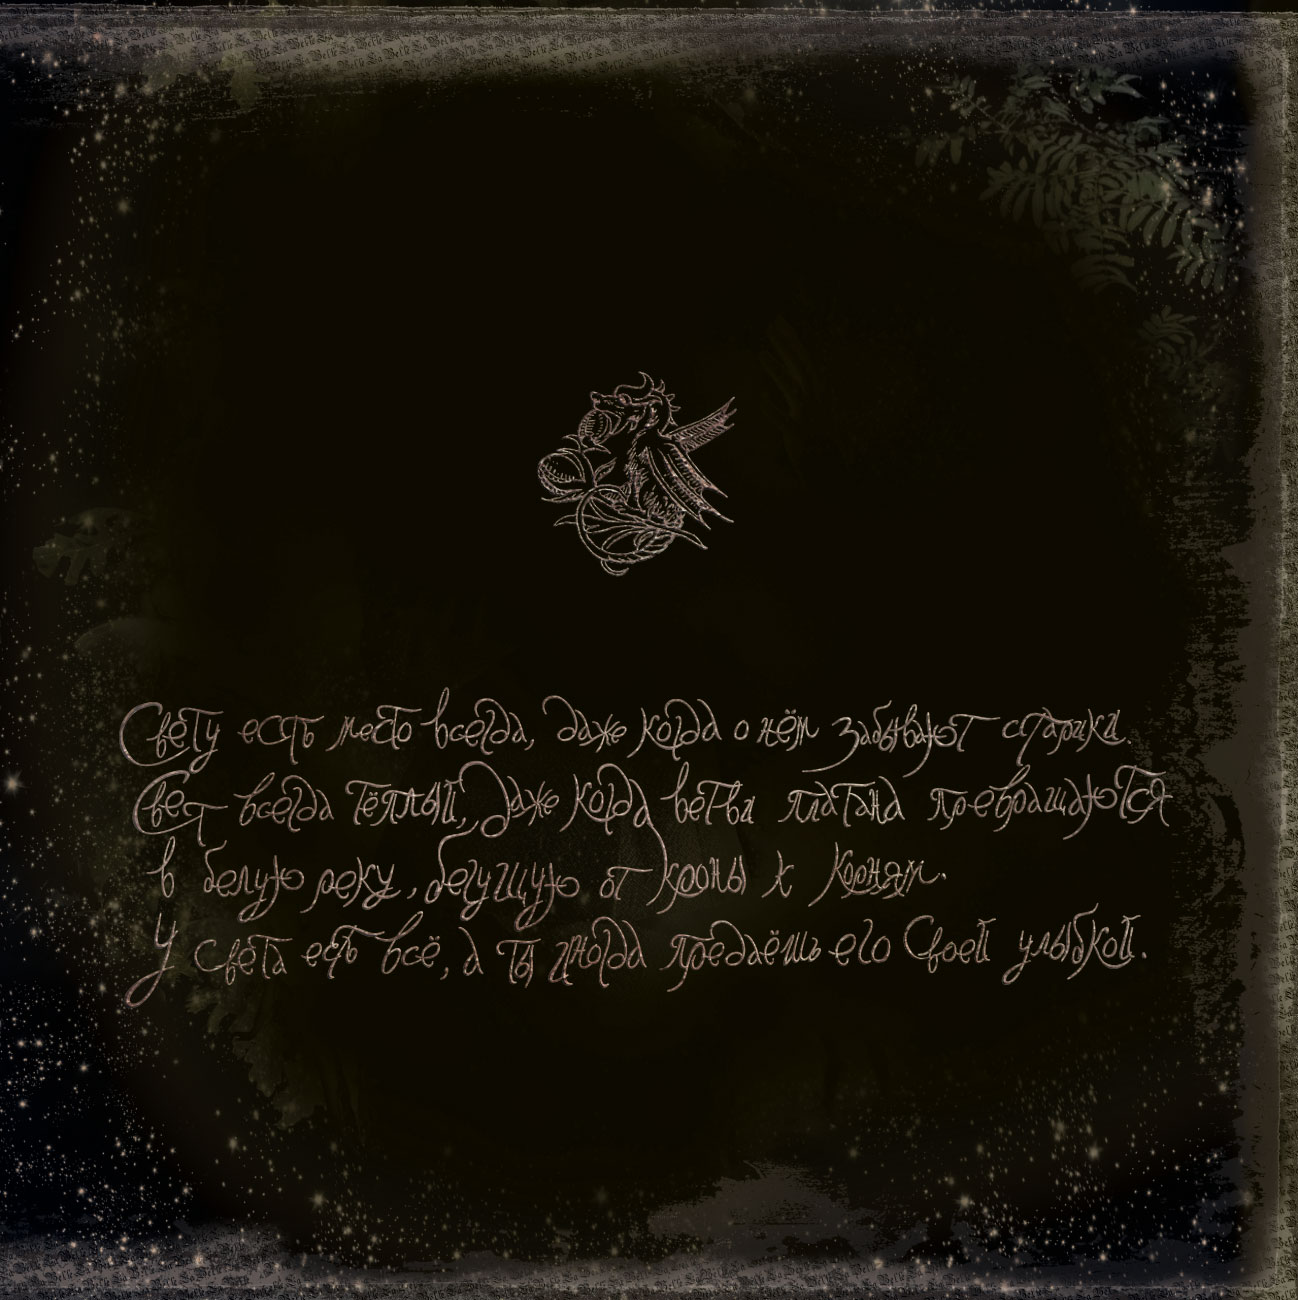 Свету есть место всегда, даже когда о нём забывают старики.
Свет всегда тёплый, даже когда ветви платана превращаются
в белую реку, бегущую от кроны к корням.
У света есть всё, а ты иногда предаёшь его своей улыбкой.